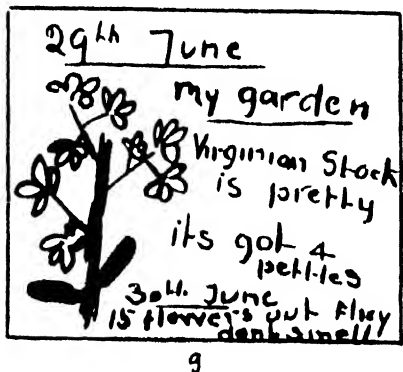 29th June
my garden
Virginian Stock
is pretty
its got 4
pettles
30th. June
15 flowers out they
dont smell
9